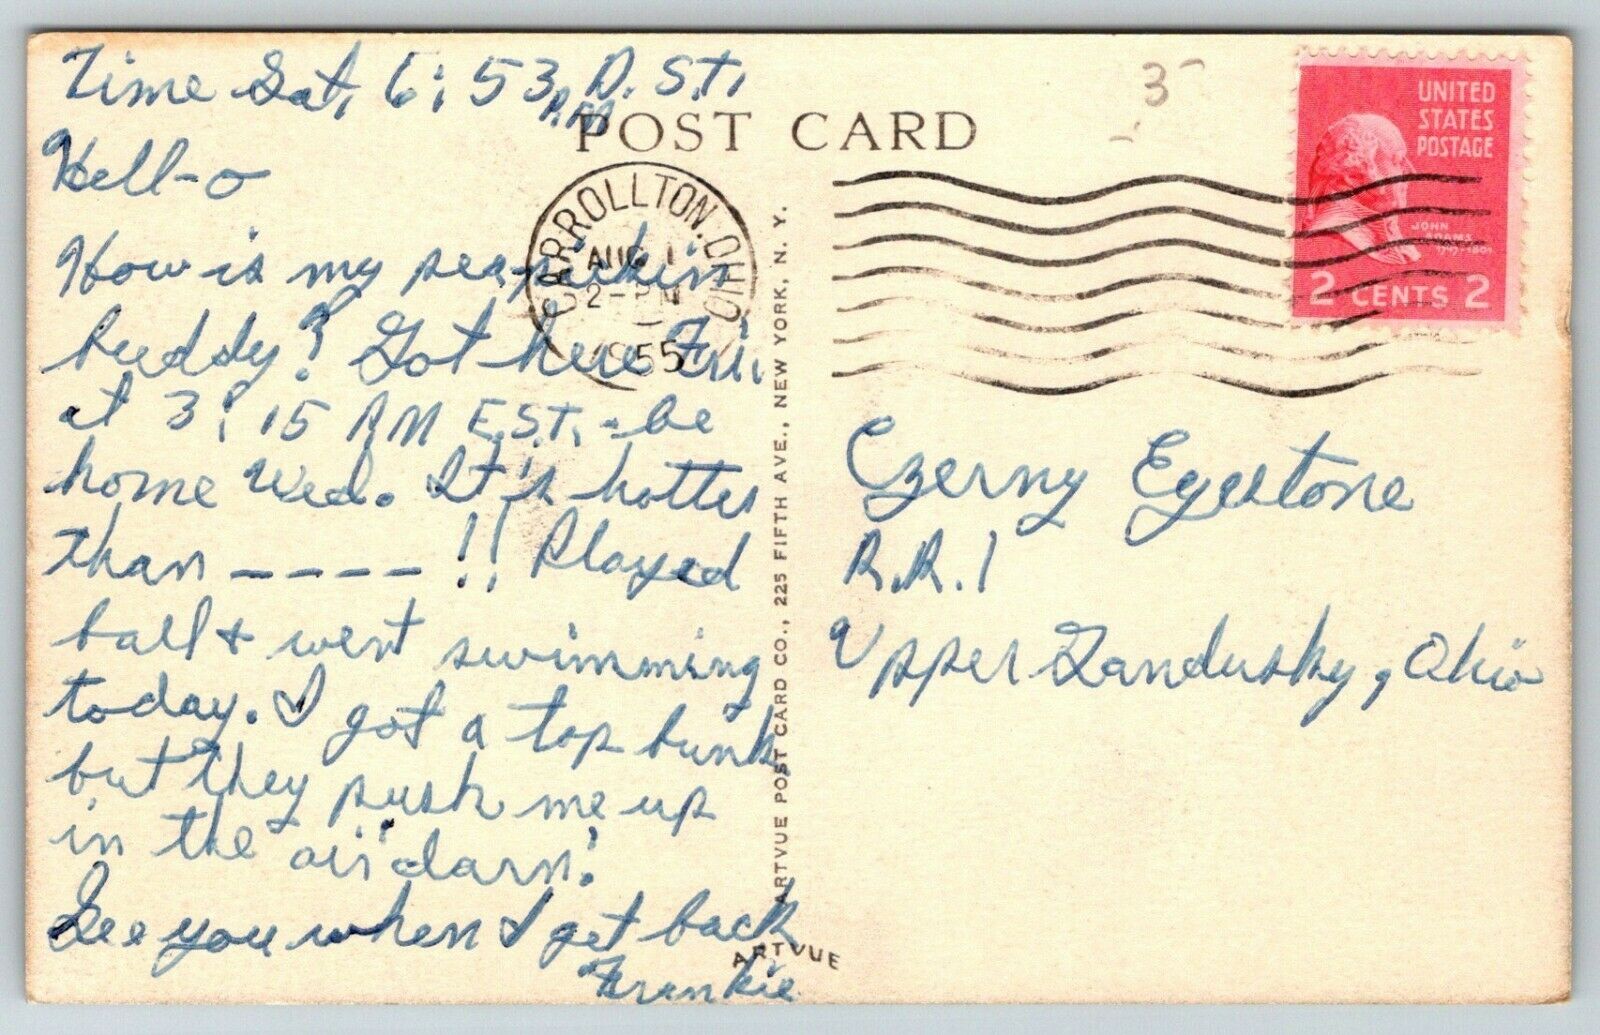 Time Sat, 6:53 P.M D.S.T.
Hell-o
How is my pea-pickin
buddy? Got here Fri.
at 3:15 P.M E.S.T. - be
home Wed. It's hotter
than ----!! Played
ball & went swimming
today. I got a top bunk,
but they push me up
in the air "darn!
See you when I get back
Frankie
POST CARD
CARROLLTON, OHIO
AUG 1
2 - PM
1955
ARTVUE POST CARD CO., 225 FIFTH AVE., NEW YORK, N. Y.
ARTVUE
3
UNITED
STATES
POSTAGE
JOHN
ADAMS
1797-1801
2 CENTS 2
Czerny Eyestone
R.R. 1
Upper Sandusky, Ohio